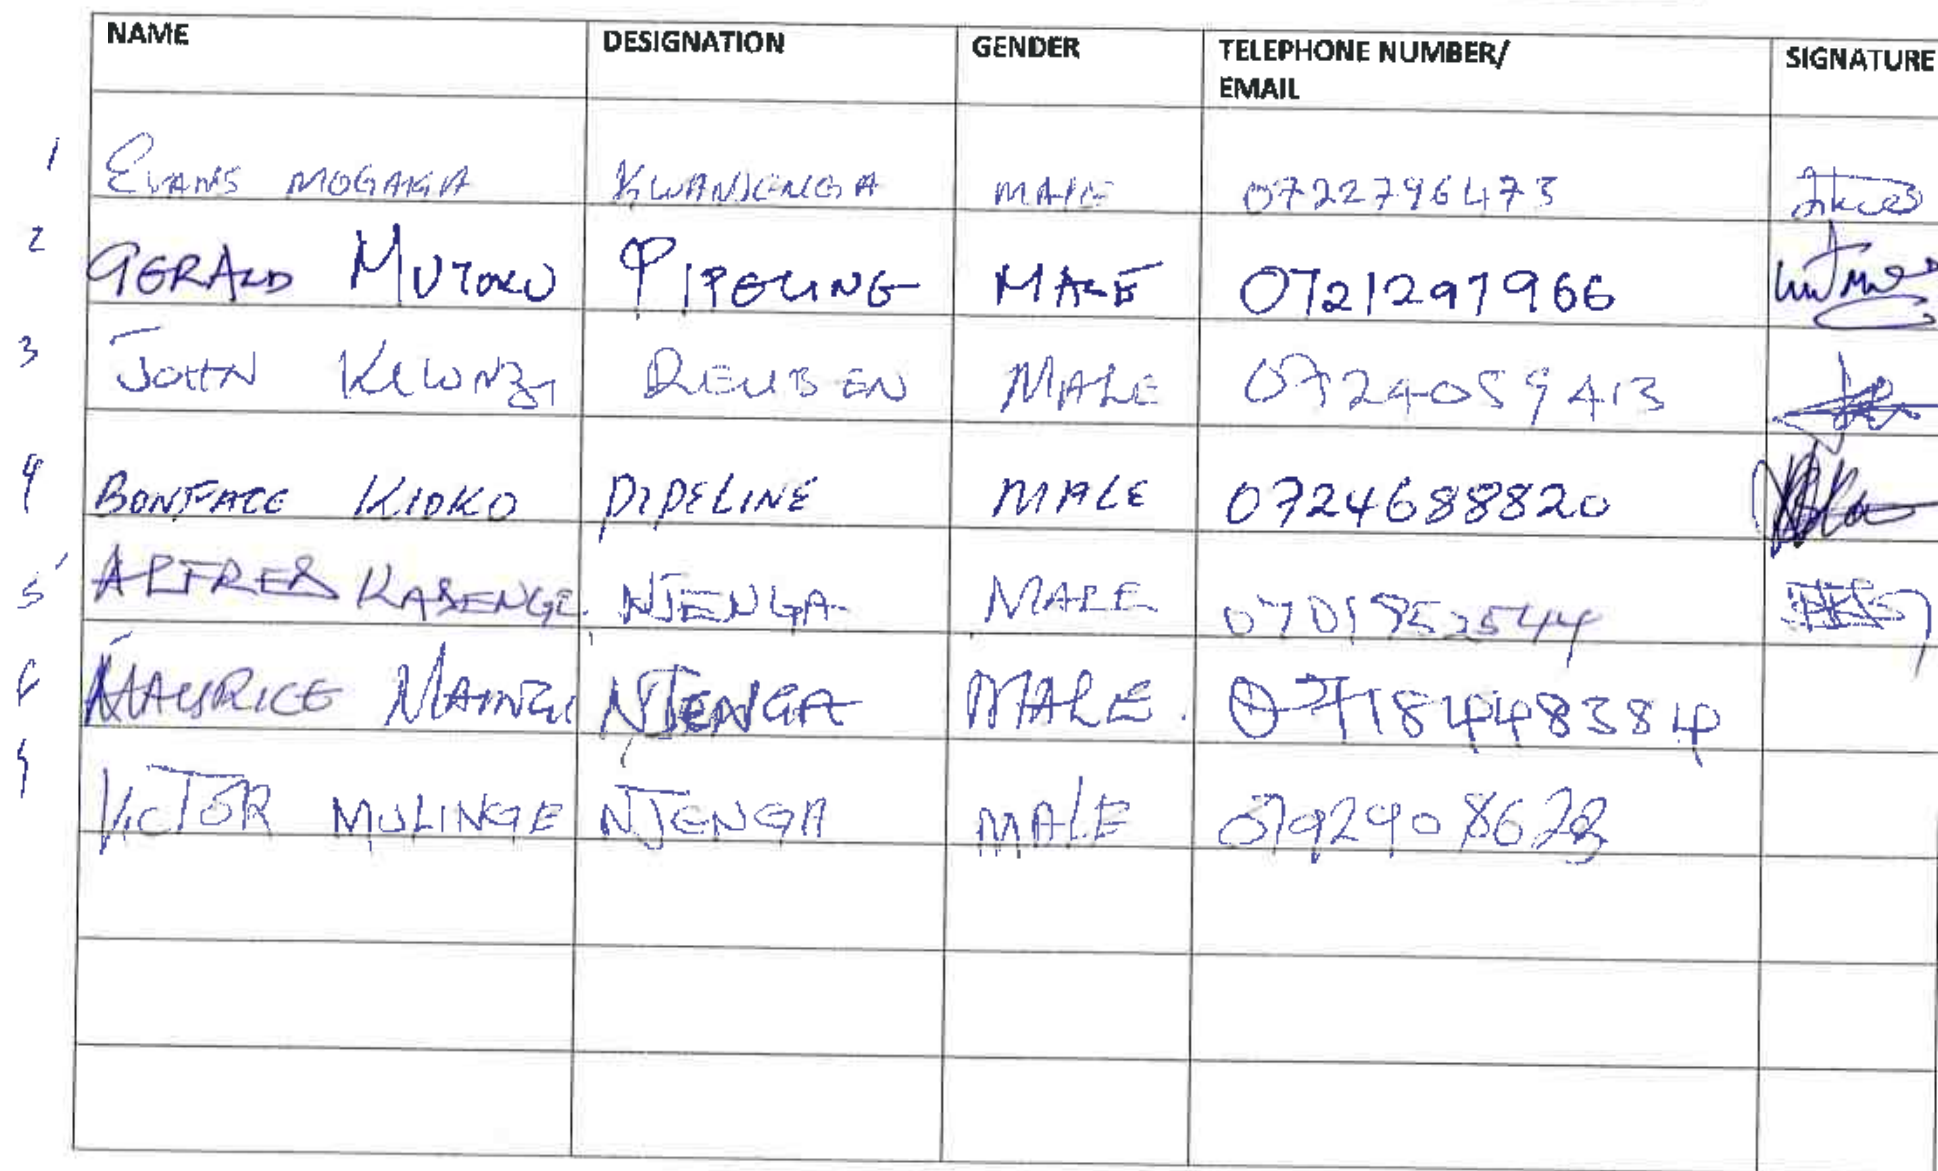 NAME DESIGNATION GENDER TELEPHONE NUMBER/ EMAIL SIGNATURE
1 EVANS MOGAKA KWANJENGA MALE 0722796473
2 GERALD MUTOKU PIPELINE MALE 0721297966
3 JOHN REUBEN MALE 0724059413
4 BONIFACE KIOKO PIPELINE MALE 0724688820
5 ALFRED KASENGE NJENGA MALE
6 MAURICE NJENGA MALE. 0718448384
VICTOR MULINGE NJENGA MALE